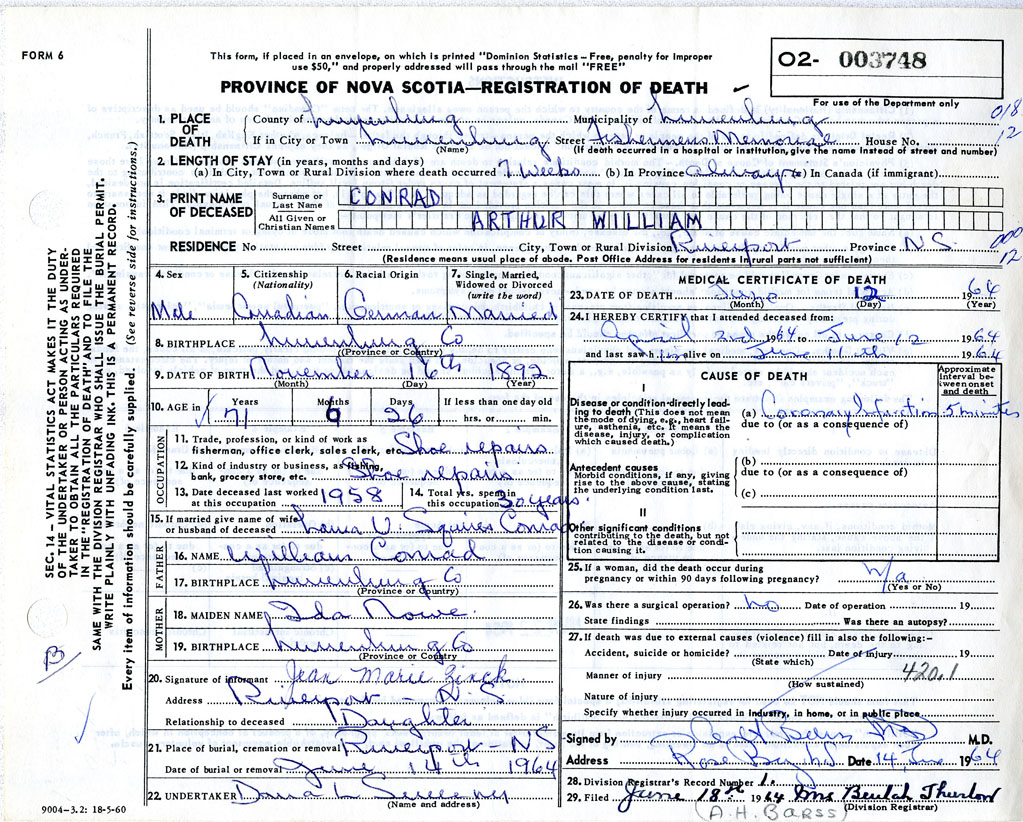 FORM 6
This form, if placed in an envelope, on which is printed "Dominion Statistics – Free, penalty for improper
use $50," and properly addressed will pass through the mail "FREE"
02- 003748
PROVINCE OF NOVA SCOTIA—REGISTRATION OF DEATH
For use of the Department only
018
12
1. PLACE OF DEATH
County of Lunenburg Municipality of Lunenburg
If in City or Town Lunenburg Street Fishermens Memorial House No.
(Name) (If death occurred in a hospital or institution, give the name instead of street and number)
2. LENGTH OF STAY (in years, months and days)
(a) In City, Town or Rural Division where death occurred 7 weeks (b) In Province Always (c) In Canada (if immigrant)
3. PRINT NAME OF DECEASED
Surname or Last Name CONRAD
All Given or Christian Names ARTHUR WILLIAM
RESIDENCE No Street City, Town or Rural Division Riverport Province N.S.
000
12
(Residence means usual place of abode. Post Office Address for residents in rural parts not sufficient)
4. Sex Male
5. Citizenship (Nationality) Canadian
6. Racial Origin German
7. Single, Married, Widowed or Divorced (write the word) Married
8. BIRTHPLACE Lunenburg Co
(Province or Country)
9. DATE OF BIRTH November 16th 1892
(Month) (Day) (Year)
10. AGE in Years 71 Months 6 Days 26 If less than one day old hrs. or min.
OCCUPATION
11. Trade, profession, or kind of work as fisherman, office clerk, sales clerk, etc. Shoe repairs
12. Kind of industry or business, as fishing, bank, grocery store, etc. Shoe repairs
13. Date deceased last worked at this occupation 1958
14. Total yrs. spent in this occupation 30 years
15. If married give name of wife or husband of deceased V. Squires Conrad
FATHER
16. NAME William Conrad
17. BIRTHPLACE Lunenburg Co
(Province or Country)
MOTHER
18. MAIDEN NAME Ida Rowe
19. BIRTHPLACE Lunenburg Co
(Province or Country
20. Signature of informant Jean Marie Zinck
Address Riverport - N.S
Relationship to deceased Daughter
21. Place of burial, cremation or removal Riverport - NS
Date of burial or removal June 14th 1964
22. UNDERTAKER
(Name and address)
MEDICAL CERTIFICATE OF DEATH
23. DATE OF DEATH June 12 1964
(Month) (Day) (Year)
24. I HEREBY CERTIFY that I attended deceased from:
April 2nd 1964 to June 12 1964
and last saw him alive on June 11th 1964
CAUSE OF DEATH
Approximate interval between onset and death
I
Disease or condition directly leading to death (This does not mean the mode of dying, e.g., heart failure, asthenia, etc. It means the disease, injury, or complication which caused death.)
(a) Coronary Infarction 5 minutes
due to (or as a consequence of)
Antecedent causes
Morbid conditions, if any, giving rise to the above cause, stating the underlying condition last.
(b)
due to (or as a consequence of)
(c)
II
Other significant conditions
contributing to the death, but not related to the disease or condition causing it.
25. If a woman, did the death occur during pregnancy or within 90 days following pregnancy? N/a
(Yes or No)
26. Was there a surgical operation? No Date of operation 19
State findings Was there an autopsy?
27. If death was due to external causes (violence) fill in also the following:–
Accident, suicide or homicide? Date of injury 19
(State which)
Manner of injury 420.1
(How sustained)
Nature of injury
Specify whether injury occurred in industry, in home, or in public place
Signed by M.D.
Address Rose Bay N.S. Date 14 June 1964
28. Division Registrar's Record Number 1.
29. Filed June 18th 1964 Mrs Beulah Thurlow
(Division Registrar)
(A.H. BARSS)
SEC. 14 – VITAL STATISTICS ACT MAKES IT THE DUTY
OF THE UNDERTAKER OR PERSON ACTING AS UNDER-
TAKER TO OBTAIN ALL THE PARTICULARS REQUIRED
IN THE "REGISTRATION OF DEATH" AND TO FILE THE
SAME WITH THE DIVISION REGISTRAR WHO SHALL ISSUE THE BURIAL PERMIT.
WRITE PLAINLY WITH UNFADING INK. THIS IS A PERMANENT RECORD.
Every item of information should be carefully supplied. (See reverse side for instructions.)
B
9004–3.2: 18-5-60